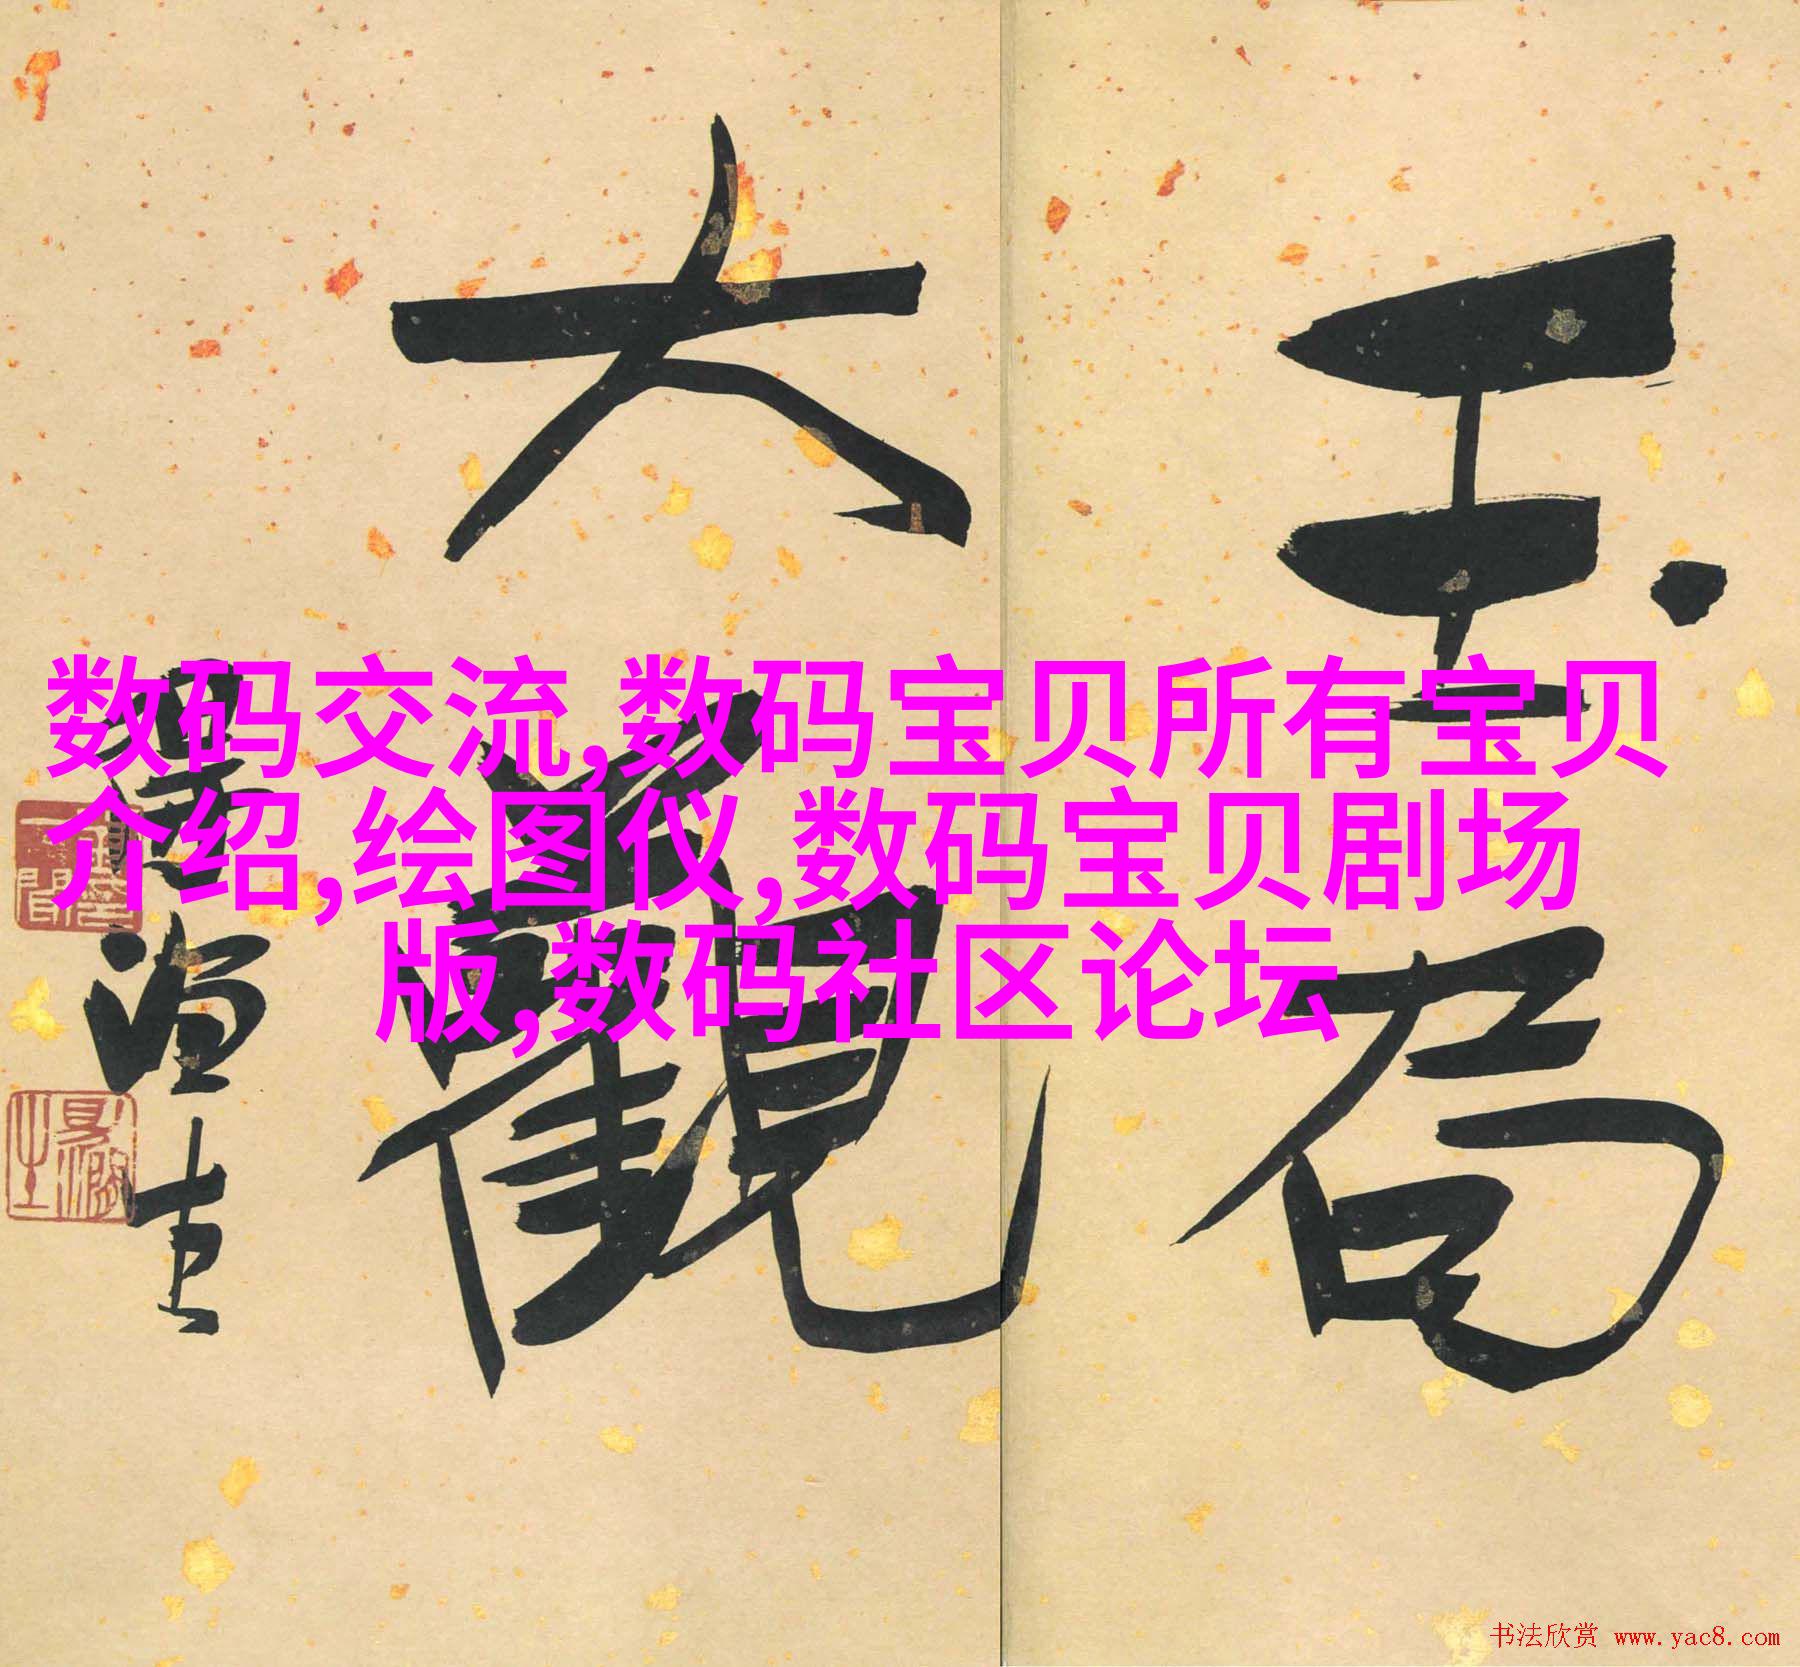 数码交流,数码宝贝所有宝贝
介绍,绘图仪,数码宝贝剧场
版,数码社区论坛
玉局
大觀
书法欣赏 www.yac8.com